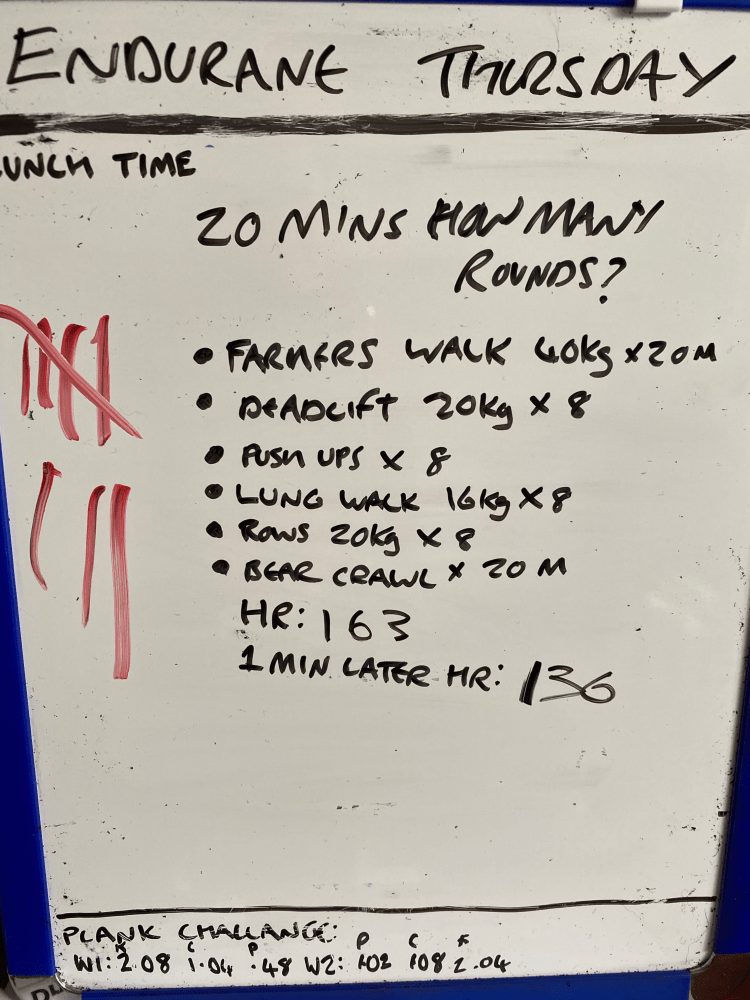 ENDURANE THURSDAY
UNCH TIME
20 MINS HOW MANY
ROUNDS?
• FARMERS WALK 40Kg x 20M
• DEADLIFT 20Kg x 8
• PUSH UPS x 8
• LUNG WALK 16Kg x 8
• ROWS 20Kg x 8
• BEAR CRAWL x 20 M
HR: 163
1 MIN LATER HR: 136
PLANK CHALLANGE:
C P P C K
W1: 2.08 1.04 .48 W2: 102 108 2.04